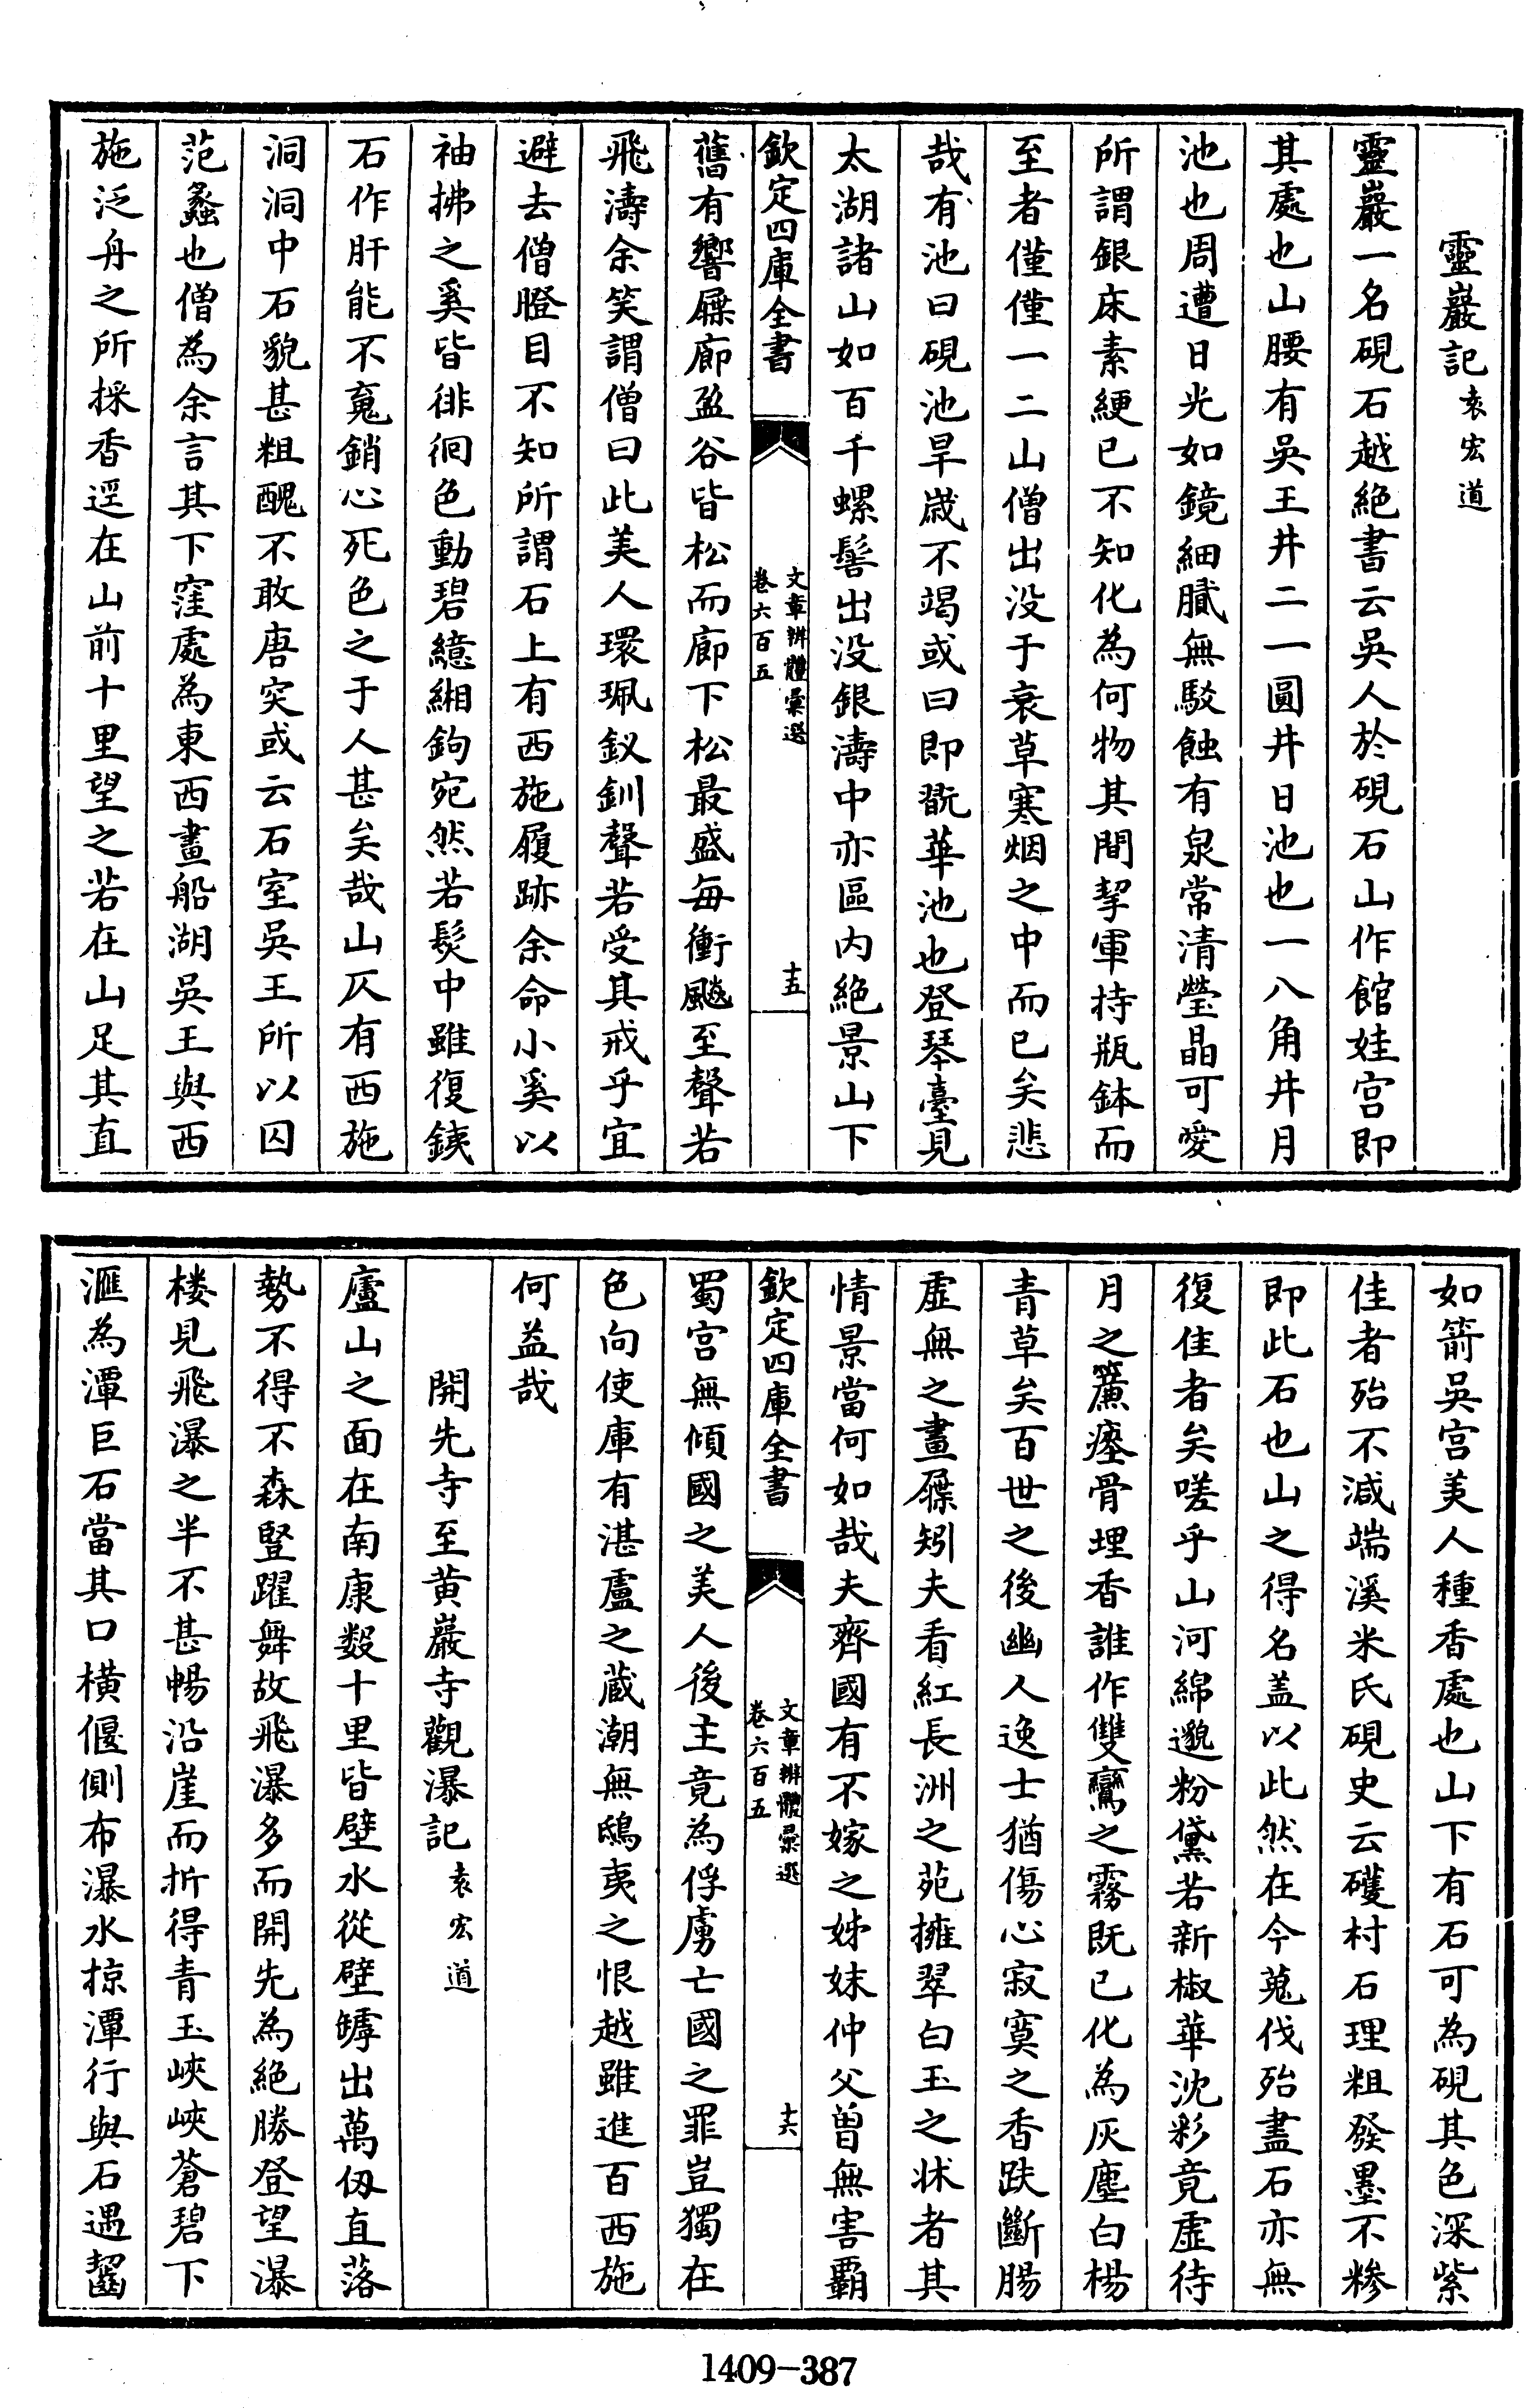 靈巖記袁宏道
靈巖一名硯石越絶書云吳人於硯石山作館娃宫即
其處也山腰有吳王井二一圓井日池也一八角井月
池也周遭日光如鏡細膩無駁蝕有泉常清瑩晶可愛
所謂銀床素綆已不知化為何物其間挈軍持瓶鉢而
至者僅僅一二山僧出没于衰草寒烟之中而已矣悲
哉有池曰硯池旱歲不竭或曰即翫華池也登琴臺見
太湖諸山如百千螺髻出没銀濤中亦區内絶景山下
欽定四庫全書
文章辨體彙選
卷六百五
十五
舊有響屧廊盈谷皆松而廊下松最盛每衝飈至聲若
飛濤余笑謂僧曰此美人環珮釵釧聲若受其戒乎宜
避去僧瞪目不知所謂石上有西施履跡余命小奚以
袖拂之奚皆徘徊色動碧繶緗鉤宛然若髮中雖復鐵
石作肝能不䰟銷心死色之于人甚矣哉山仄有西施
洞洞中石貌甚粗醜不敢唐突或云石室吳王所以囚
范蠡也僧為余言其下窪處為東西畫船湖吳王與西
施泛舟之所採香逕在山前十里望之若在山足其直
如箭吳宫美人種香處也山下有石可為硯其色深紫
佳者殆不減端溪米氏硯史云䂄村石理粗發墨不糝
即此石也山之得名盖以此然在今蒐伐殆盡石亦無
復佳者矣嗟乎山河綿邈粉黛若新椒華沈彩竟虚待
月之簾瘞骨埋香誰作雙鸞之霧既已化為灰塵白楊
青草矣百世之後幽人逸士猶傷心寂寞之香趺斷腸
虚無之畫屧矧夫看紅長洲之苑擁翠白玉之牀者其
情景當何如哉夫齊國有不嫁之姊妹仲父曾無害霸
欽定四庫全書
文章辨體彙選
卷六百五
十六
蜀宫無傾國之美人後主竟為俘虜亡國之罪豈獨在
色向使庫有湛盧之藏潮無鴟夷之恨越雖進百西施
何益哉
開先寺至黄巖寺觀瀑記袁宏道
廬山之面在南康數十里皆壁水從壁罅出萬仭直落
勢不得不森竪躍舞故飛瀑多而開先為絶勝登望瀑
楼見飛瀑之半不甚暢沿崖而折得青玉峽峽蒼碧下
滙為潭巨石當其口横偃側布瀑水掠潭行與石遇齧
1409-387